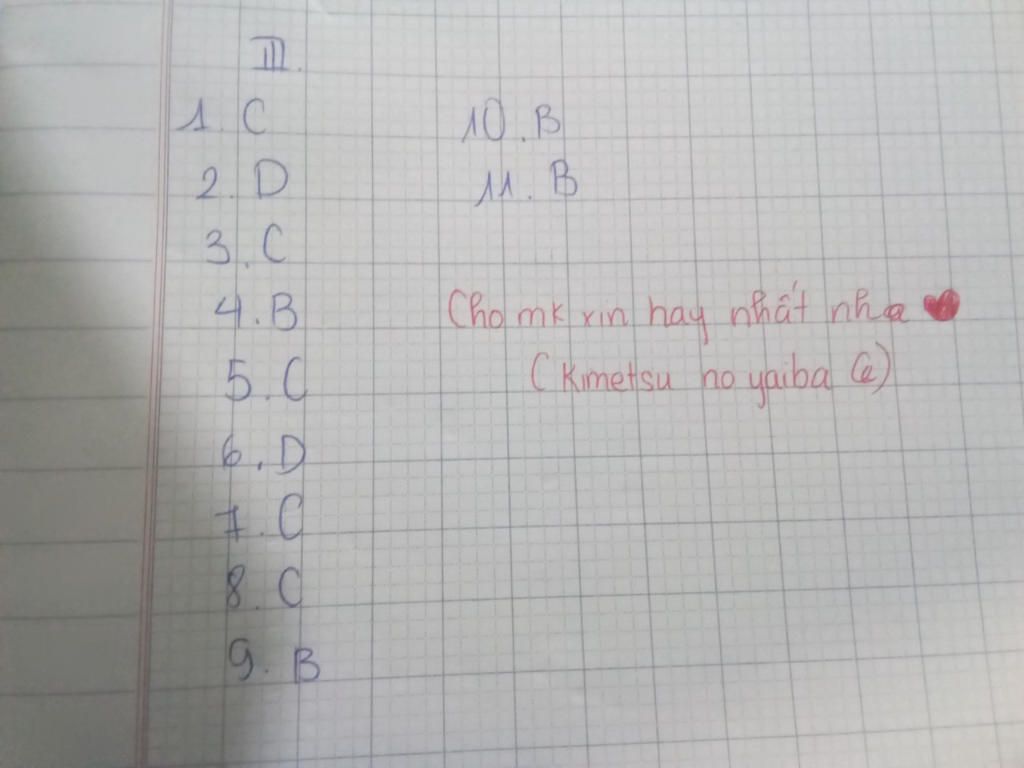 III.
1. C
2. D
3. C
4. B
5. C
6. D
7. C
8. C
9. B
10. B
11. B
Cho mk xin hay nhất nha
(Kimetsu no yaiba